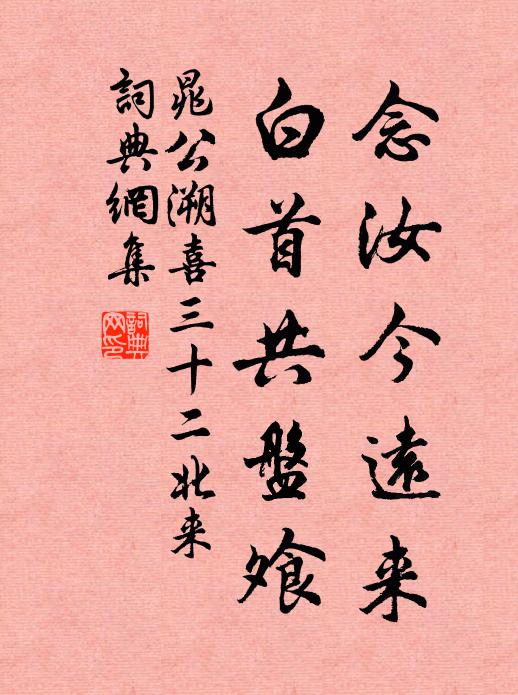 念汝今遠来
白首共盤飧
晁公溯喜三十二北来
詞典網集
詞典
网印